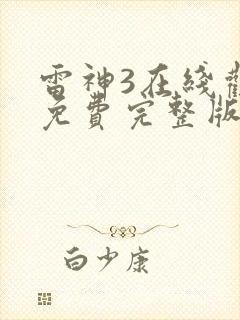 雷神3在线
免费完整版
白少康